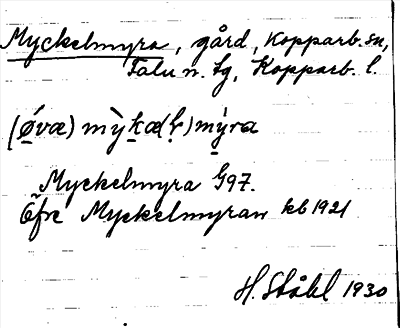 Myckelmyra, gård, Kopparb. sn,
Falu n. tg, Kopparb. l.
(ǿvæ) mỳkæ(ḷ)mýra
Myckelmyra G97.
Öfre Myckelmyran kb 1921
H. Ståhl 1930